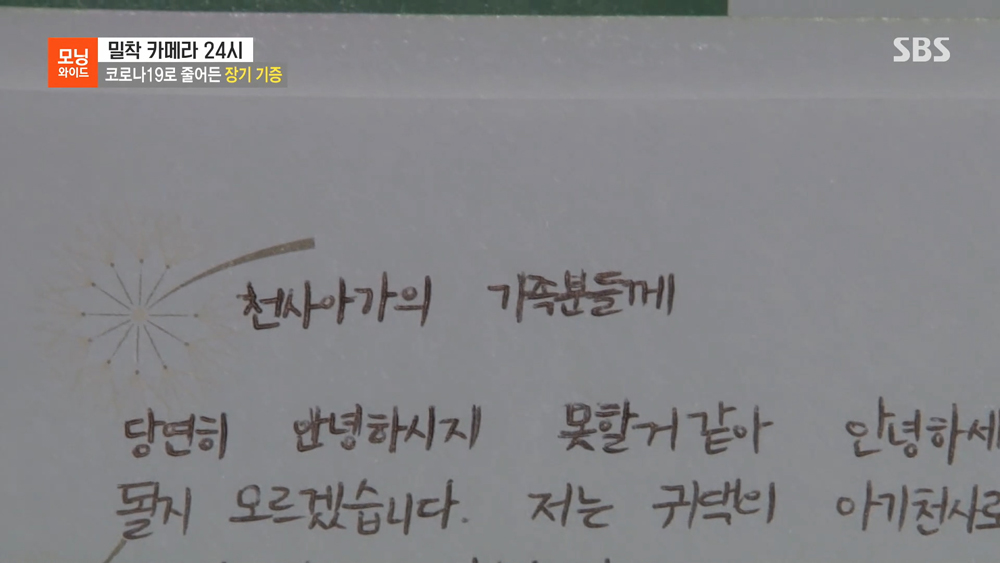 모닝 와이드
밀착 카메라 24시
코로나19로 줄어든 장기 기증
SBS
천사아가의 가족분들께
당연히 안녕하시지 못할거같아 안녕하세
될지 모르겠습니다. 저는 귀댁의 아기천사로